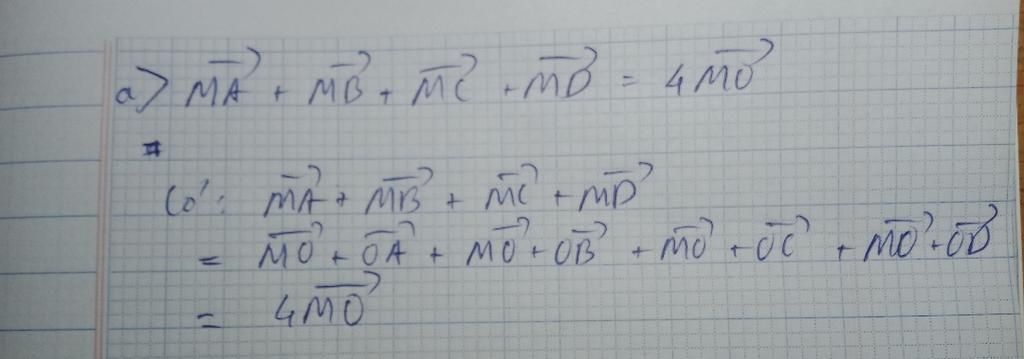 a) $\overrightarrow{MA} + \overrightarrow{MB} + \overrightarrow{MC} + \overrightarrow{MD} = 4\overrightarrow{MO}$
Có: $\overrightarrow{MA} + \overrightarrow{MB} + \overrightarrow{MC} + \overrightarrow{MD}$
$= \overrightarrow{MO} + \overrightarrow{OA} + \overrightarrow{MO} + \overrightarrow{OB} + \overrightarrow{MO} + \overrightarrow{OC} + \overrightarrow{MO} + \overrightarrow{OD}$
$= 4\overrightarrow{MO}$